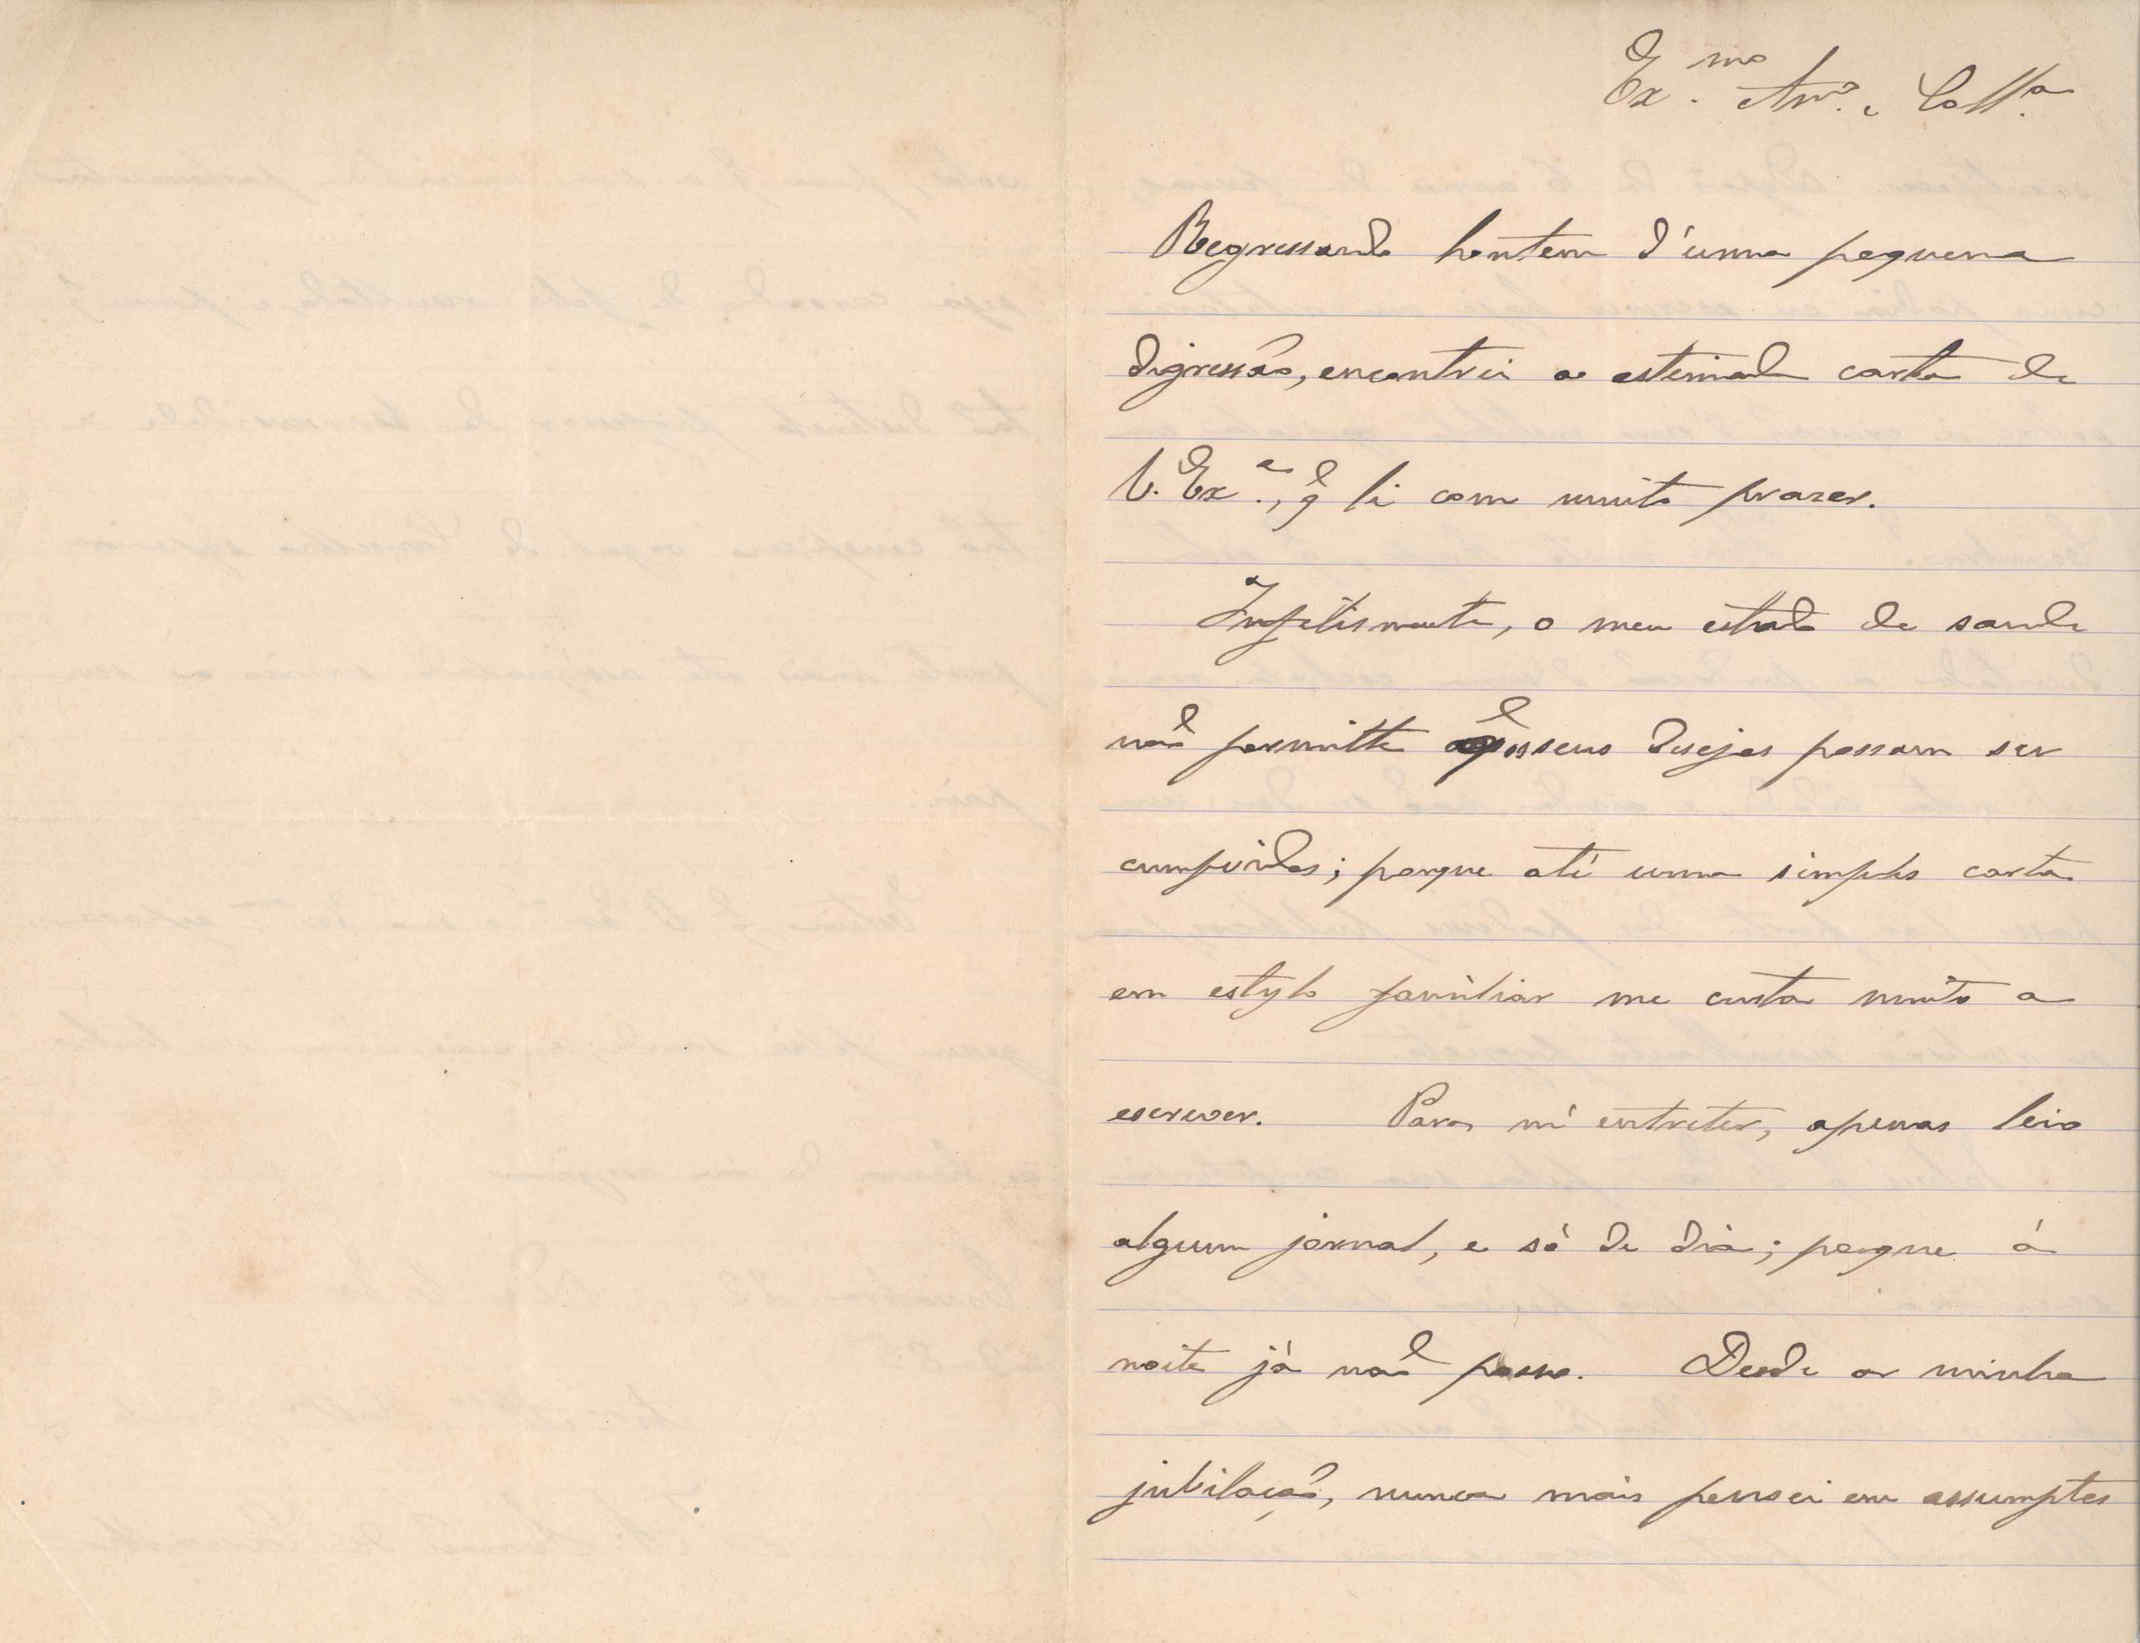 Ex.mo Am.o e Coll.a
Regressando hontem d'uma pequena
digressão, encontrei a estimada carta de
V. Ex.a, q li com muito prazer.
Infelismente, o meu estado de saude
não permitte q os seus desejos possam ser
cumpridos; porque até uma simples carta
em estylo familiar me custa muito a
escrever. Para m'entreter, apenas leio
algum jornal, e só de dia; porque á
noite já não posso. Desde a minha
jubilação, nunca mais pensei em assumptos